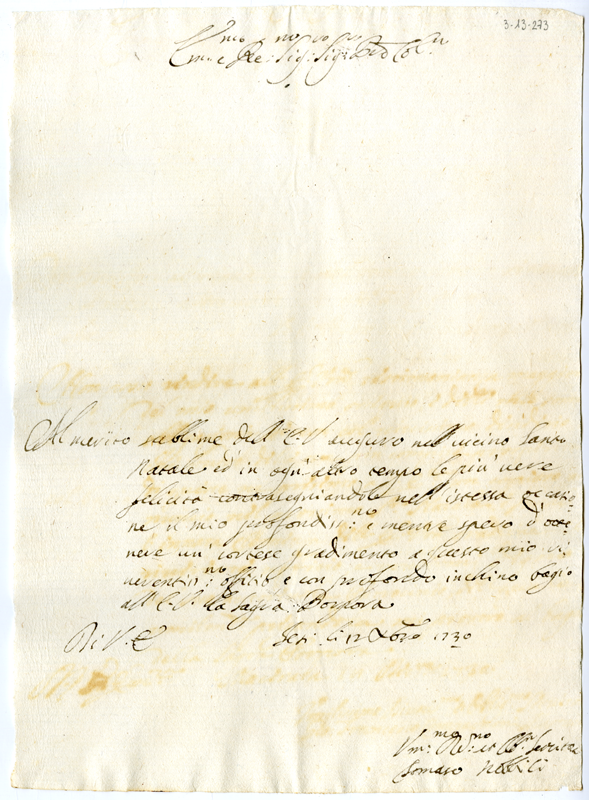 3-13-273
Em:mo e Re:mo Sig: Sig:r P'rò Col:mo
Al merito sublime dell'E.V auguro nell'uicino Santo
Natale ed'in ogn'altro tempo le più uere
felicità contrasegniandole nell'istessa occasio-
ne il mio profondis:mo e mentre spero d'otte-
nere un'cortese gradimento a questo mio ri-
uerentis:mo offitio e con profondo inchino bagio
all'E.V. la Sagra Porpora
Di V. E Jesi li 12 Xbre 1730
Vm:mo De:mo et Obl:mo Seruitore
Tomaso Nobili